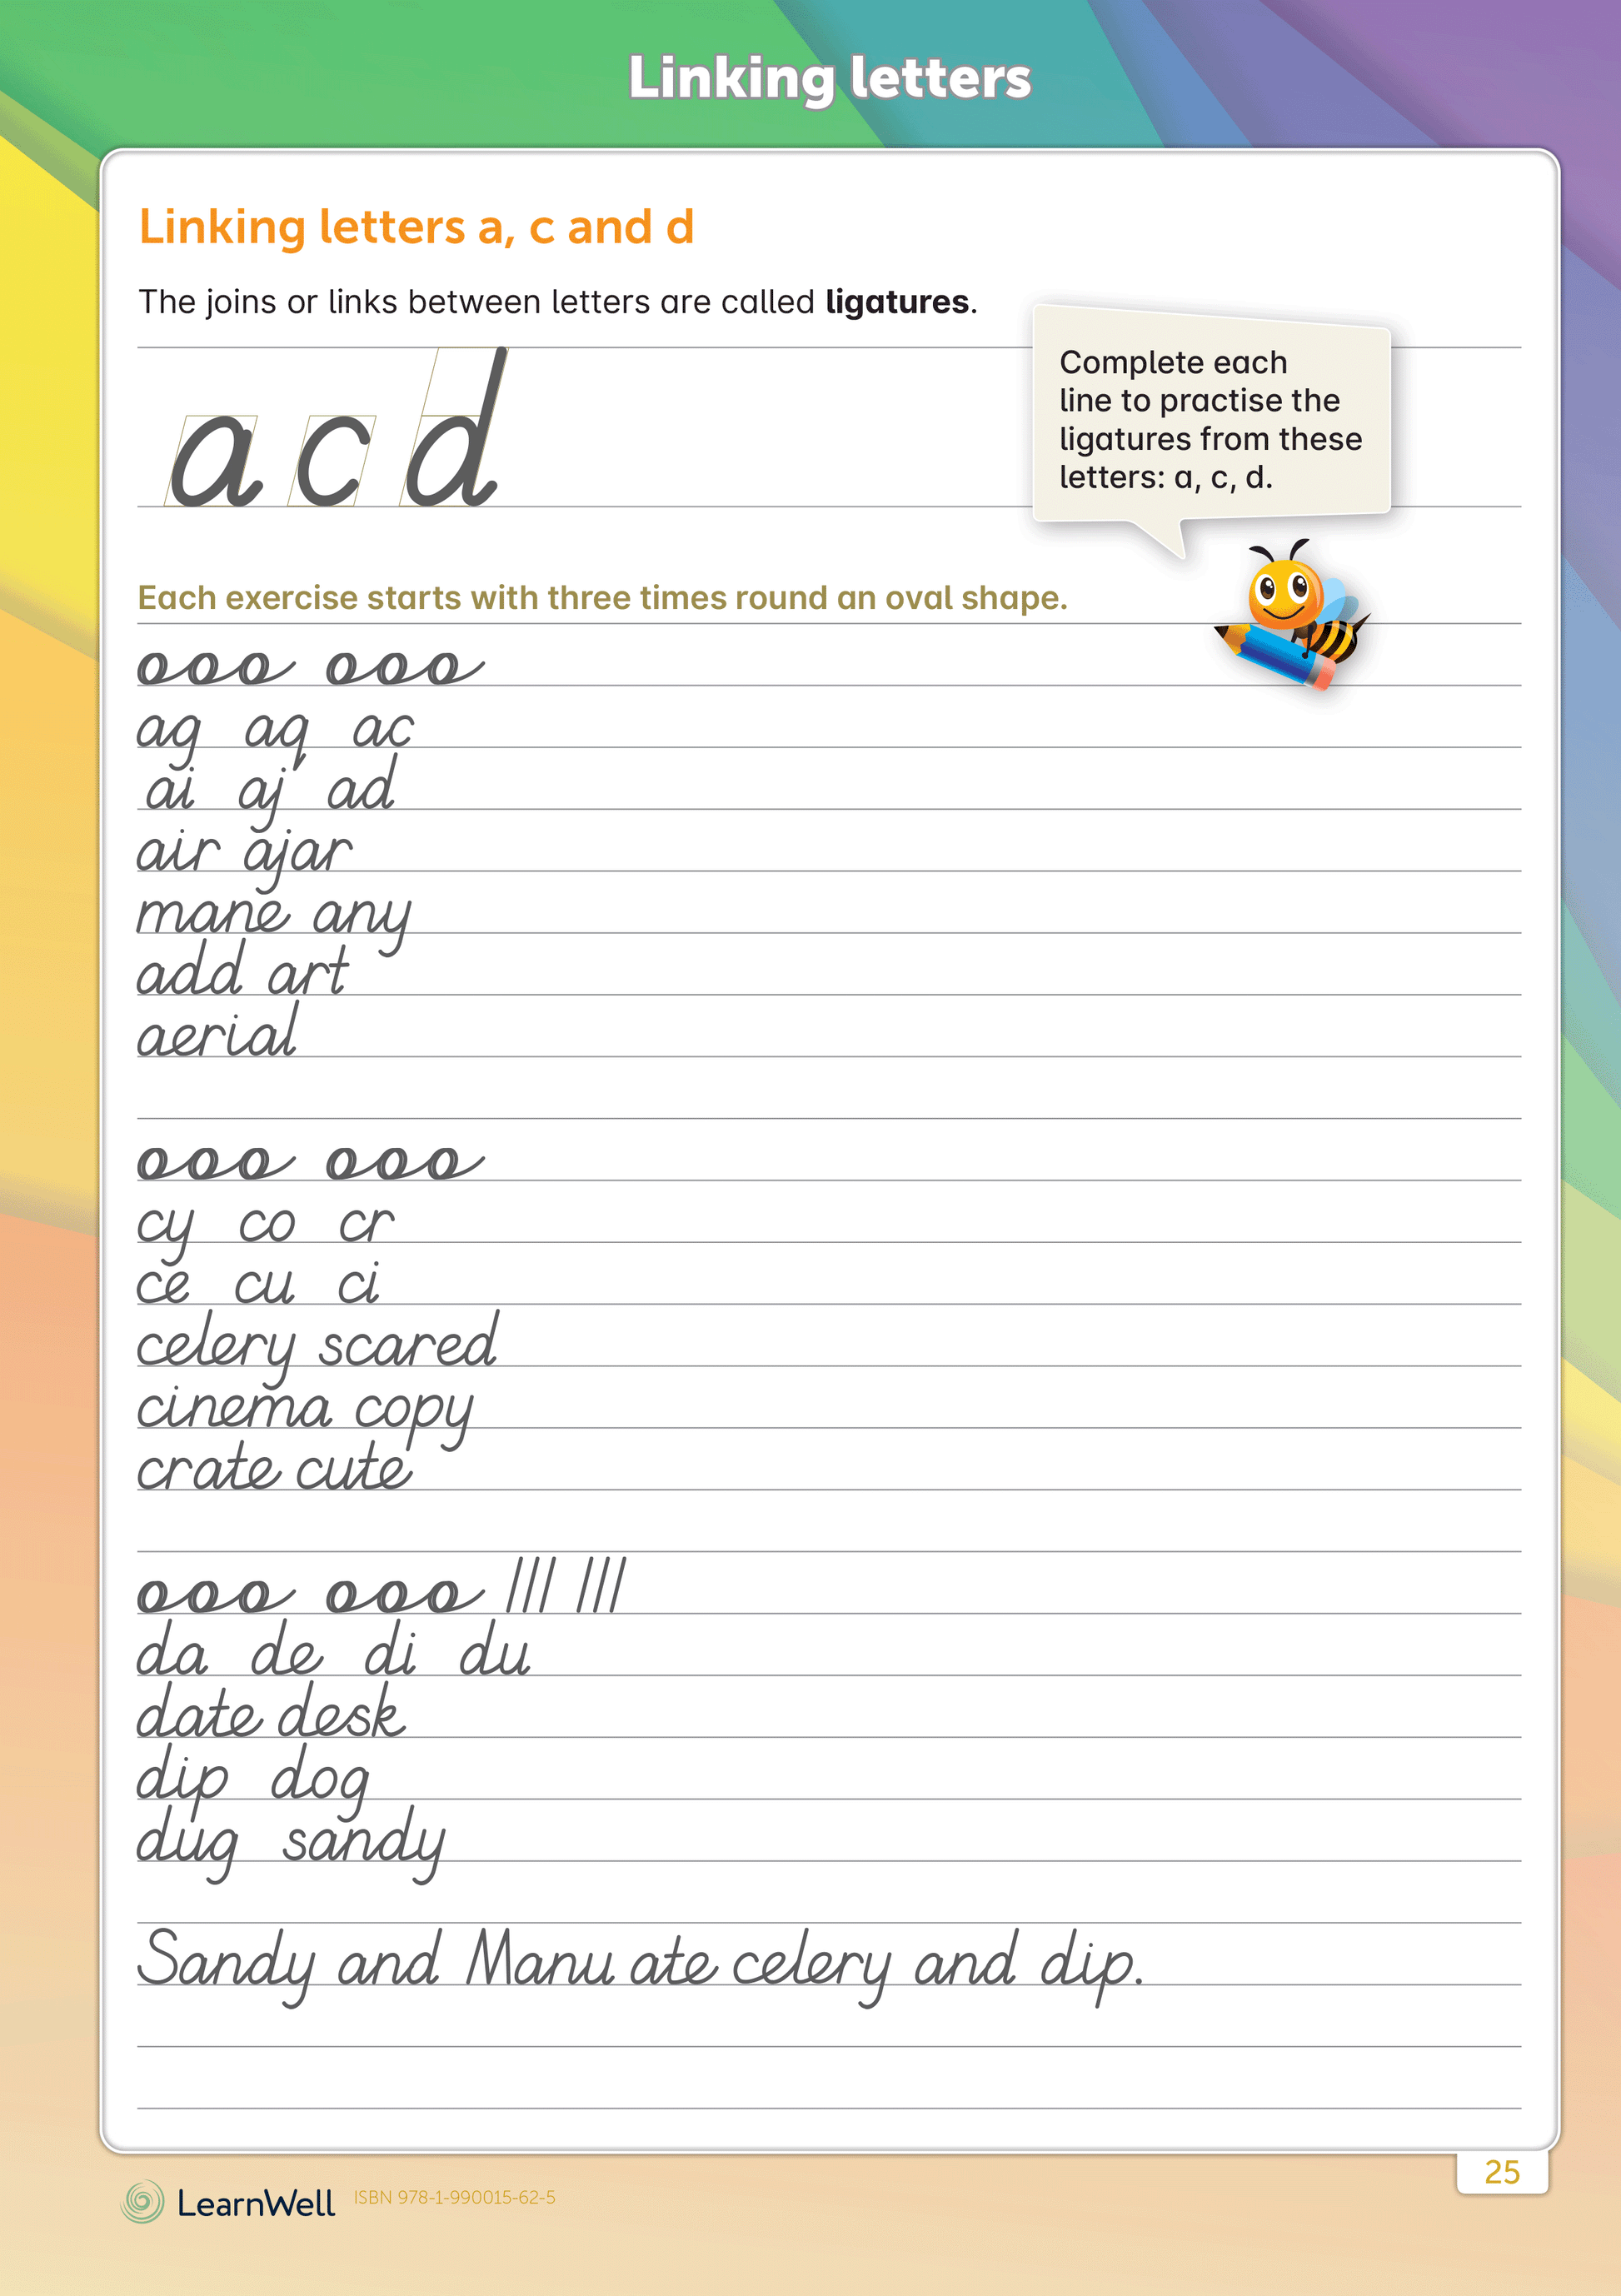 Linking letters
Linking letters a, c and d
The joins or links between letters are called ligatures.
Complete each
line to practise the
ligatures from these
letters: a, c, d.
a c d
Each exercise starts with three times round an oval shape.
ooo ooo
ag aq ac
ai aj ad
air ajar
mane any
add art
aerial
ooo ooo
cy co cr
ce cu ci
celery scared
cinema copy
crate cute
ooo ooo /// ///
da de di du
date desk
dip dog
dug sandy
Sandy and Manu ate celery and dip.
25
LearnWell ISBN 978-1-990015-62-5